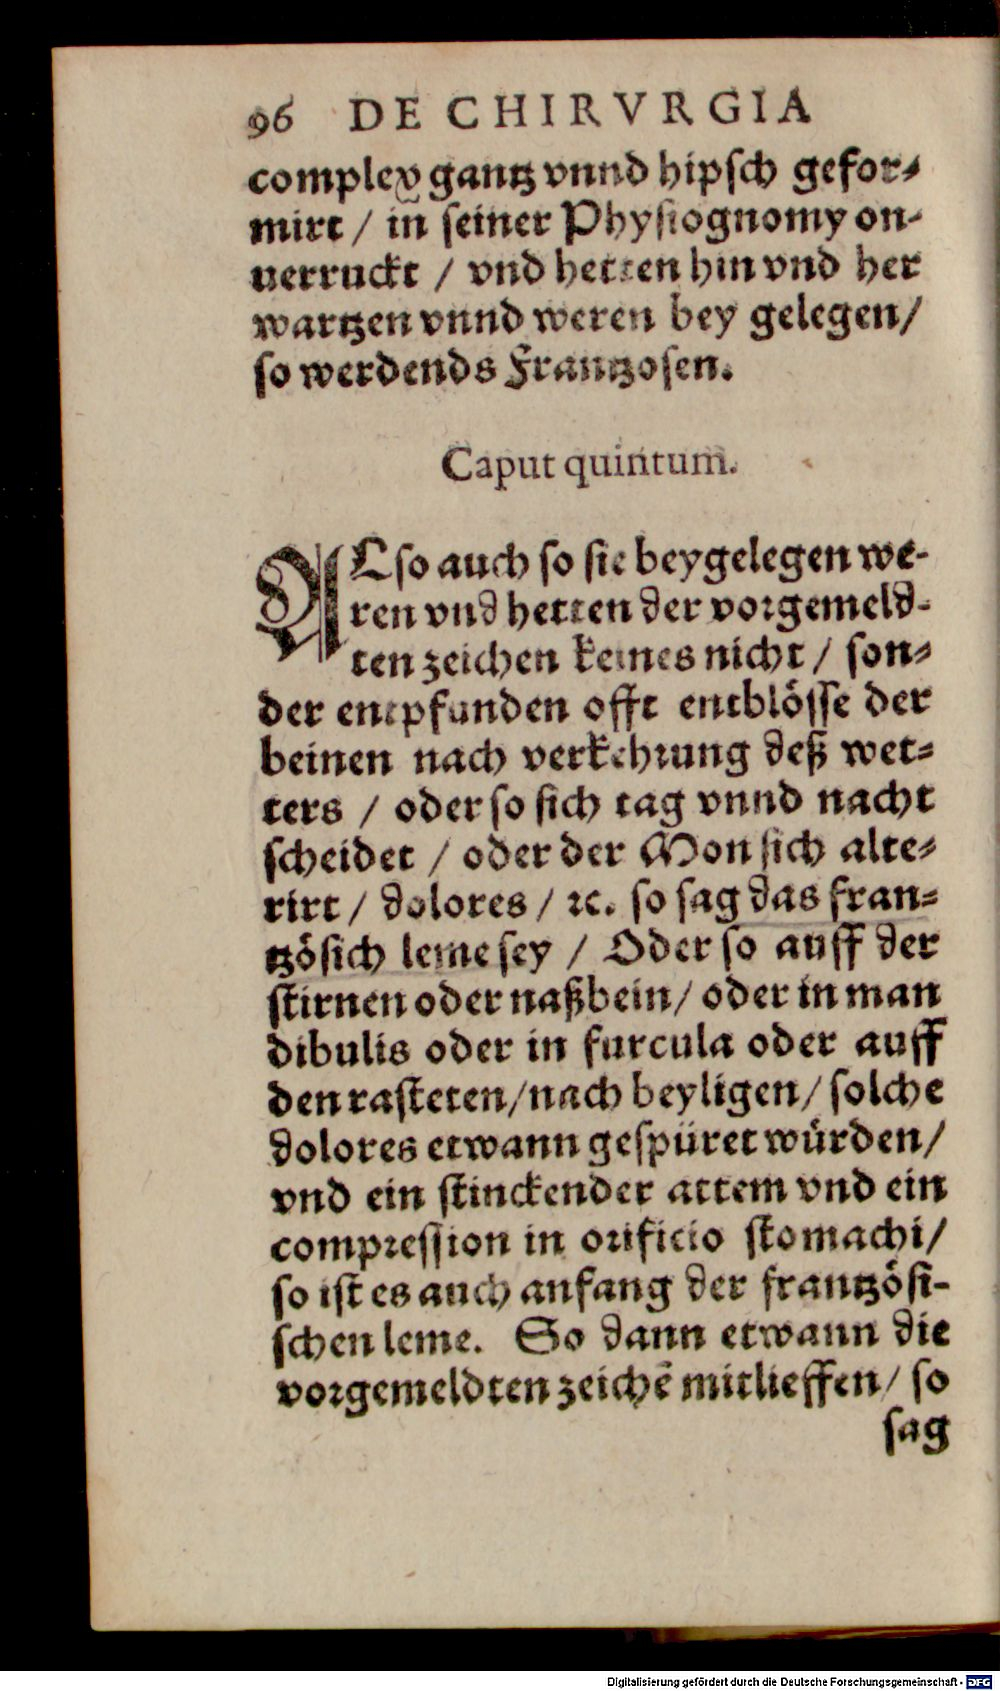 96 DE CHIRVRGIA
complex gantz vnnd hipsch gefor⸗
mirt / in seiner Physiognomy on-
uerruckt / vnd hetten hin vnd her
wartzen vnnd weren bey gelegen/
so werdends Frantzosen.
Caput quintum.
ALso auch so sie beygelegen we-
ren vnd hetten der vorgemeld-
ten zeichen keines nicht / son⸗
der entpfunden offt entblösse der
beinen nach verkehrung deß wet⸗
ters / oder so sich tag vnnd nacht
scheidet / oder der Mon sich alte⸗
rirt / dolores / ꝛc. so sag das fran⸗
tzösich leme sey / Oder so auff der
stirnen oder naßbein/ oder in man
dibulis oder in furcula oder auff
den rasteten/nach beyligen/ solche
dolores etwann gespüret würden/
vnd ein stinckender attem vnd ein
compression in orificio stomachi/
so ist es auch anfang der frantzösi-
schen leme. So dann etwann die
vorgemeldten zeichē mitlieffen/ so
sag
Digitalisierung gefördert durch die Deutsche Forschungsgemeinschaft - DFG